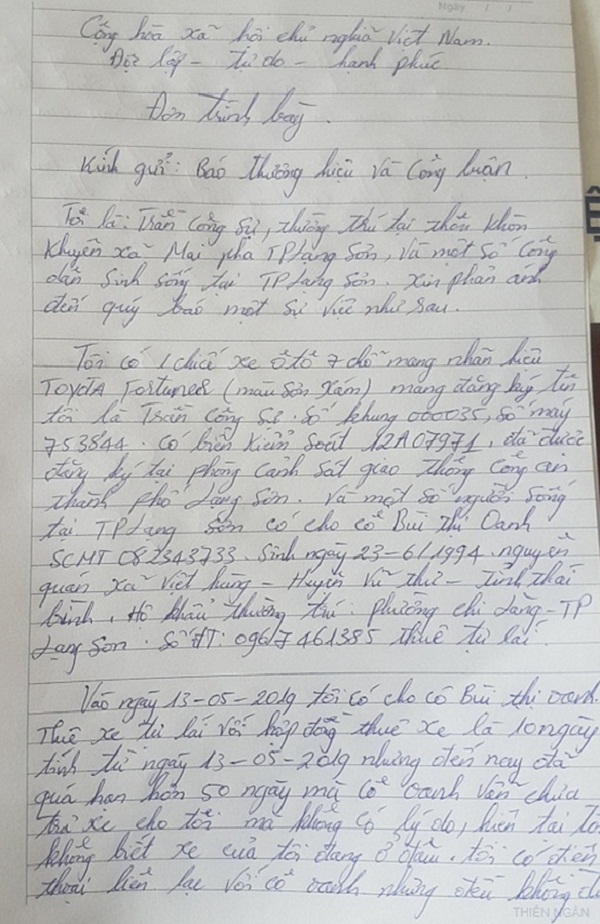 Ngày / /
Cộng hòa xã hội chủ nghĩa Việt Nam.
Độc lập - tự do - hạnh phúc
Đơn trình bày.
Kính gửi: Báo Thương hiệu và Công luận.
Tôi là: Trần Công Sự, thường trú tại thôn Khòn
Khuyên xã Mai pha TP Lạng Sơn, và một số công
dân sinh sống tại TP Lạng Sơn. Xin phản ánh
đến quý báo một sự việc như sau.
Tôi có 1 chiếc xe ô tô 7 chỗ mang nhãn hiệu
TOYOTA Fortuner (màu sơn xám) mang đăng ký tên
tôi là Trần Công Sự. Số khung 000035, số máy
753844. có biển kiểm soát 12A07971, đã được
đăng ký tại phòng cảnh sát giao thông công an
thành phố Lạng Sơn. và một số người sống
tại TP Lạng Sơn có cho cô Bùi Thị Oanh
SCMT 082343733. Sinh ngày 23-6/1994. nguyên
quán xã Việt hùng - Huyện Vũ thư - tỉnh thái
bình, Hộ khẩu thường trú: phường chi Lăng - TP
Lạng Sơn. Số ĐT: 0967461385 thuê tự lái.
Vào ngày 13-05-2019 tôi có cho cô Bùi thị oanh.
Thuê xe tự lái với hợp đồng thuê xe là 10 ngày
tính từ ngày 13-05-2019 nhưng đến nay đã
quá hạn hơn 50 ngày mà cô oanh vẫn chưa
trả xe cho tôi mà không có lý do, hiện tại tô
không biết xe của tôi đang ở đâu. tôi có điện
thoại liên lạc với cô oanh nhưng đều không đ
THIÊN NGÂN